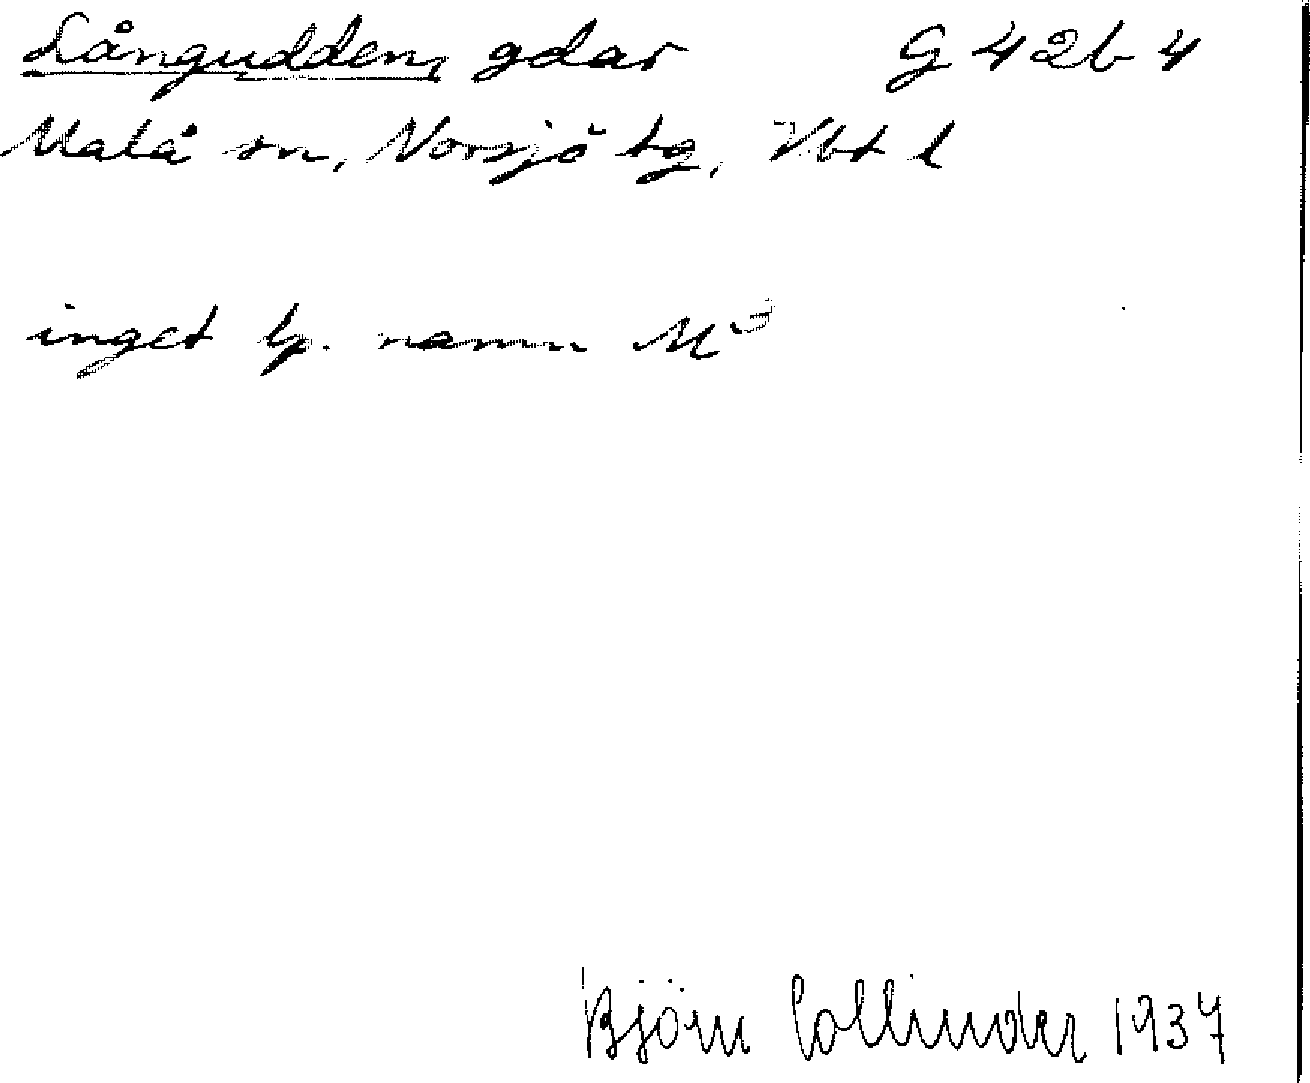 Långudden, gdar G 42b 4
Malå sn, Norsjö tg, Vbt l
inget lp. namn M³
Björn Collinder 1937